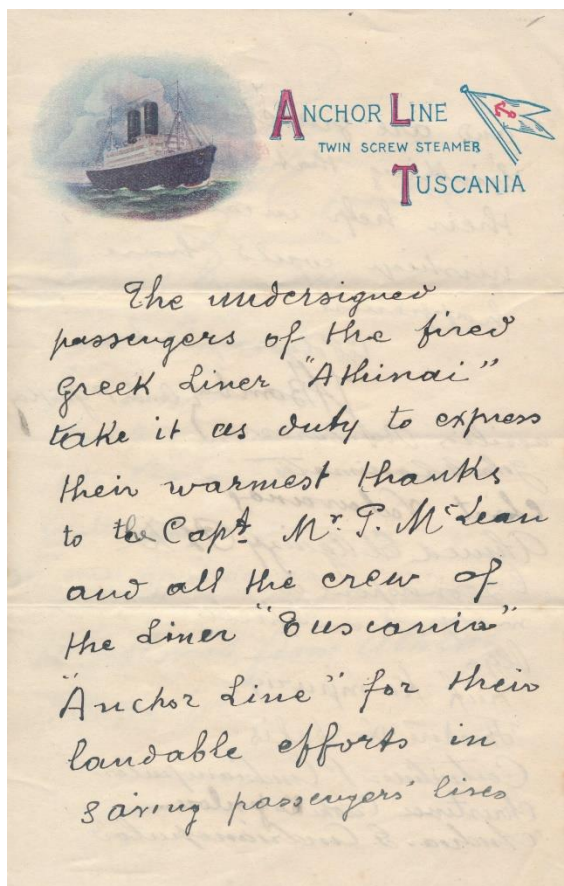 ANCHOR LINE
TWIN SCREW STEAMER
TUSCANIA
The undersigned
passengers of the fired
Greek Liner "Athinai"
take it as duty to express
their warmest thanks
to the Capt. Mr. P. McLean
and all the crew of
the Liner "Tuscania"
"Anchor Line" for their
laudable efforts in
saving passengers' lives